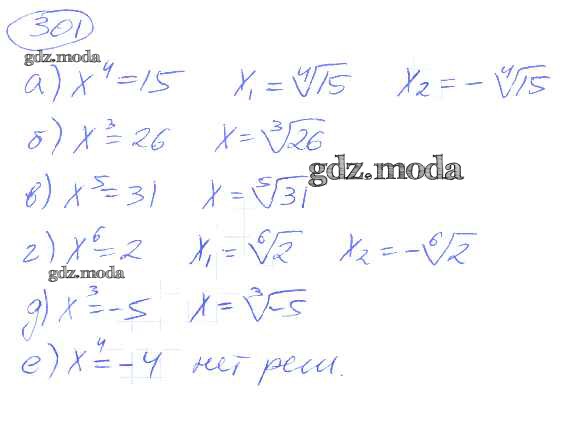 301
gdz.moda
а) x⁴ = 15 x₁ = ⁴√15 x₂ = - ⁴√15
б) x³ = 26 x = ³√26
gdz.moda
в) x⁵ = 31 x = ⁵√31
г) x⁶ = 2 x₁ = ⁶√2 x₂ = - ⁶√2
gdz.moda
д) x³ = -5 x = ³√-5
е) x⁴ = -4 нет реш.